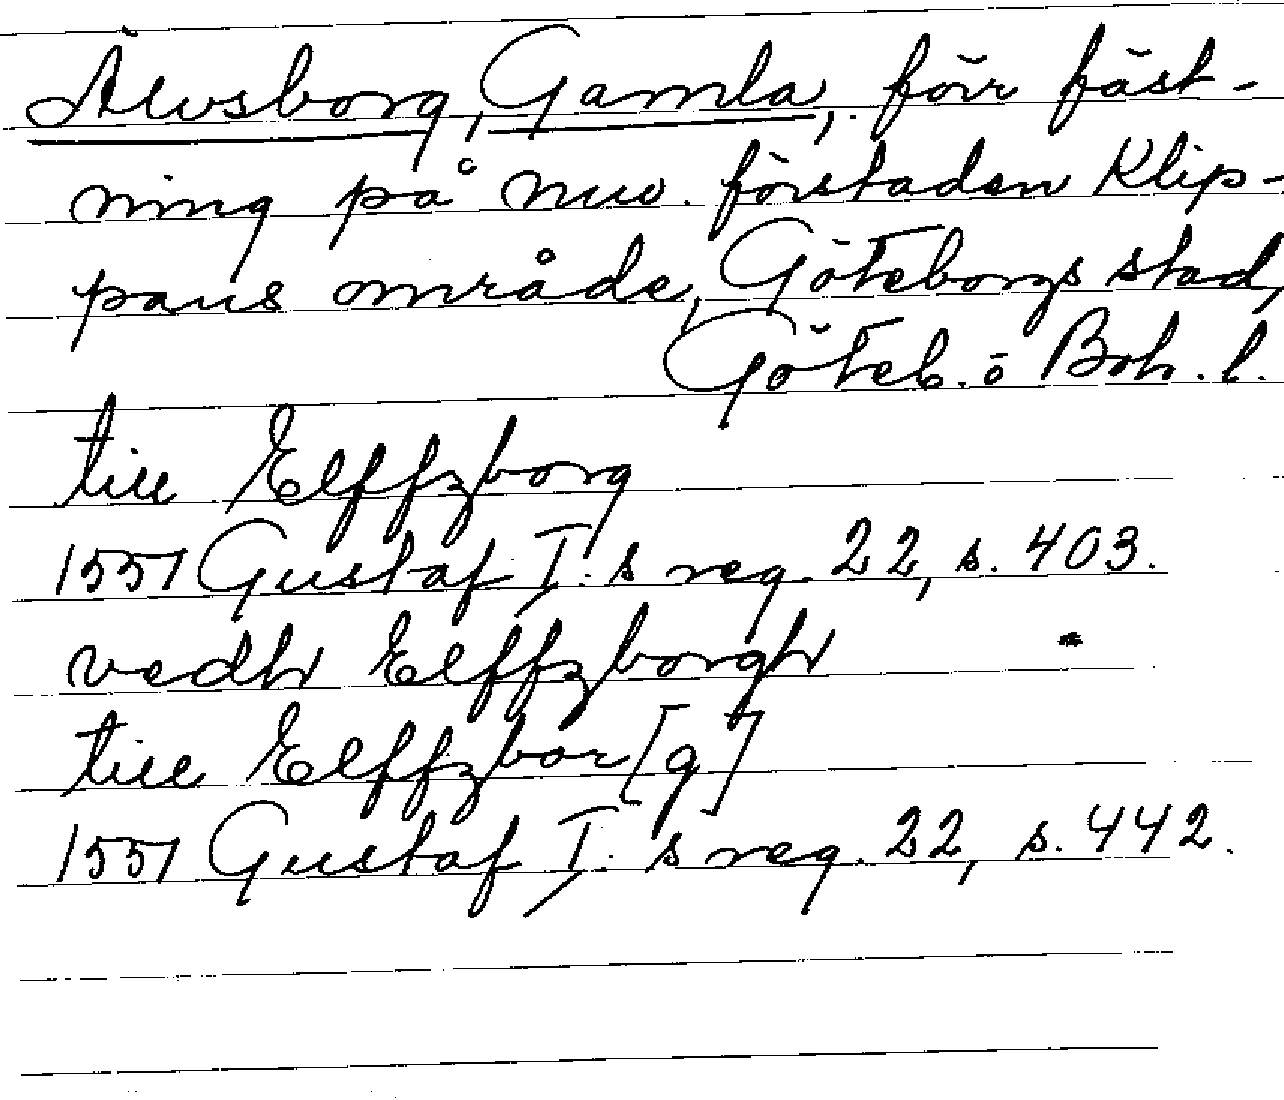 Älvsborg, Gamla, förr fäst-
ning på nuv. förstaden Klip-
pans område, Göteborgs stad,
Göteb. o Boh. l.
till Elffzborg
1551 Gustaf I:s reg. 22, s. 403.
vedh Elffzborgh
till Elffzbor[g]
1551 Gustaf I:s reg. 22, s. 442.